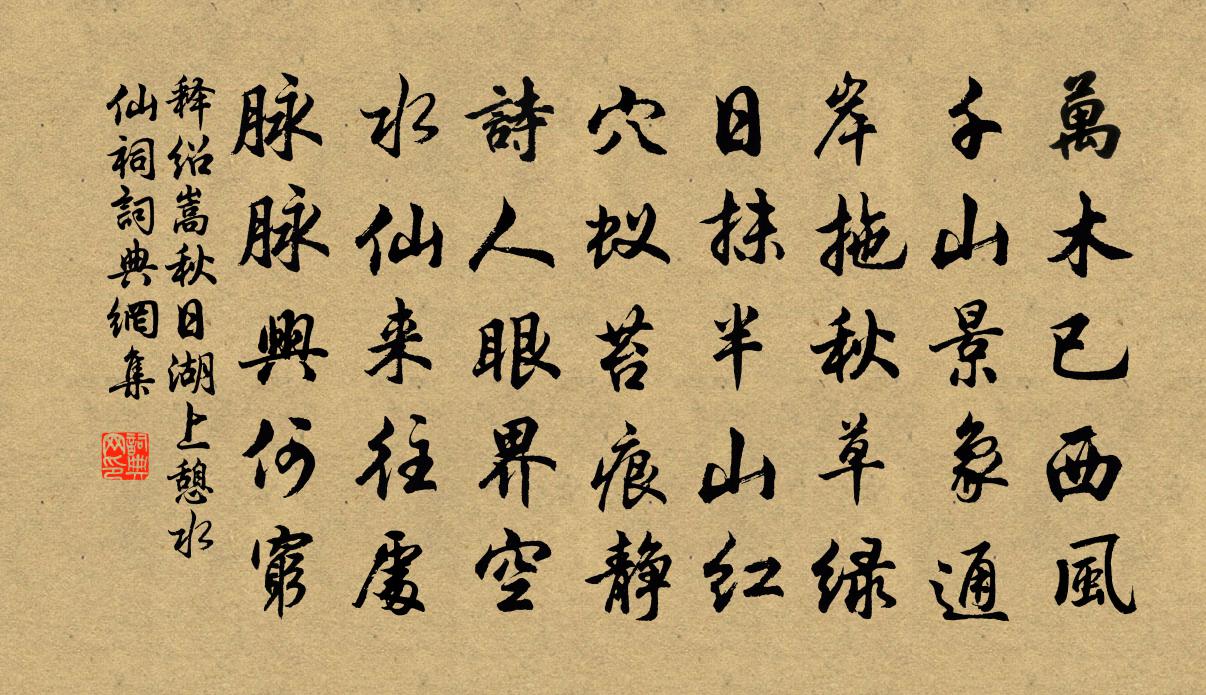 萬木已西風
千山景象通
岸拖秋草绿
日抹半山红
穴蚁苔痕静
詩人眼界空
水仙来往處
脉脉興何窮
释绍嵩秋日湖上憩水
仙祠詞典網集
詞典網印